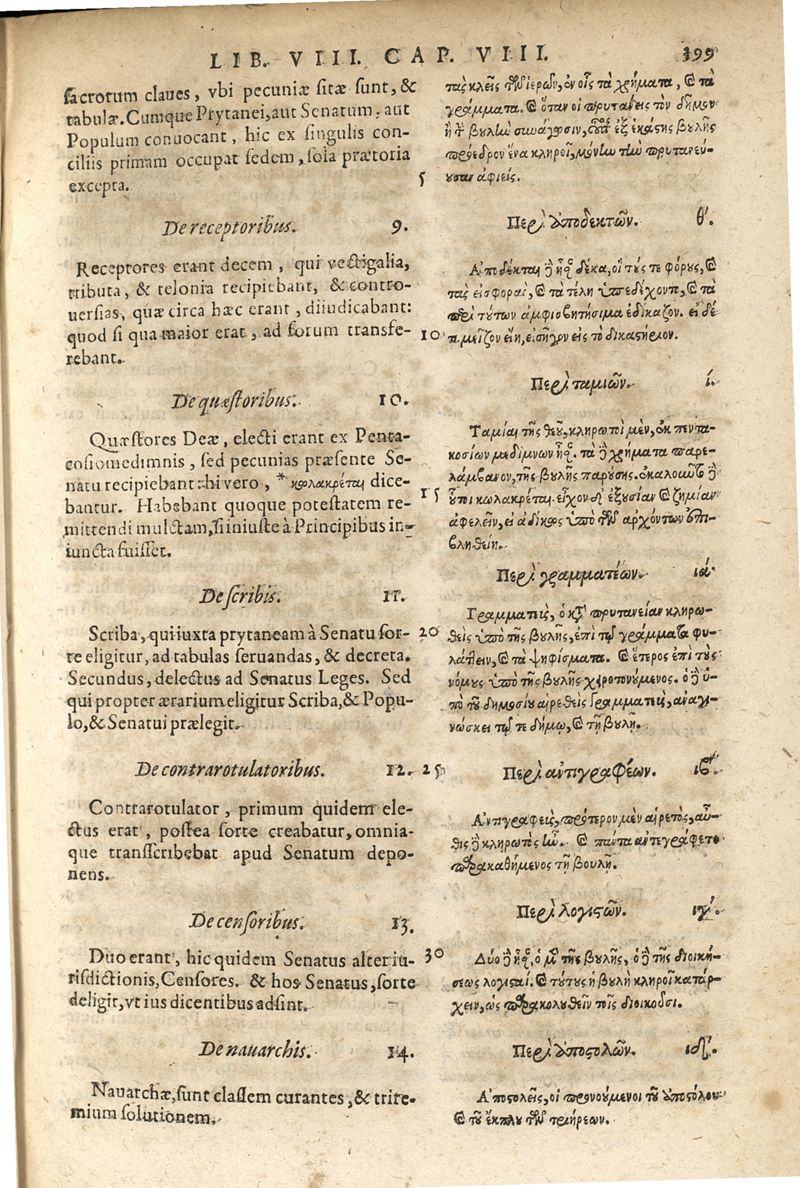 LIB. VIII. CAP. VIII. 399
sacrotum claues, vbi pecuniæ sitæ sunt, &
tabulæ. Cumque Prytanei, aut Senatum, aut
Populum conuocant, hic ex singulis con-
ciliis primam occupat sedem, sola prætoria
excepta.
De receptoribus. 9.
Receptores erant decem, qui vectigalia,
tributa, & telonia recipiebant, & contro-
uersias, quæ circa hæc erant, diiudicabant:
quod si qua maior erat, ad forum transfe-
rebant.
De quæstoribus. 10.
Quæstores Deæ, electi erant ex Penta-
cosiomedimnis, sed pecunias præsente Se-
natu recipiebant: hi vero, * κωλακρέται dice-
bantur. Habebant quoque potestatem re-
mittendi mulctam, si iniuste à Principibus in-
iuncta fuisset.
De scribis. 11.
Scriba, qui iuxta prytaneam à Senatu sor-
te eligitur, ad tabulas seruandas, & decreta.
Secundus, delectus ad Senatus Leges. Sed
qui propter ærarium eligitur Scriba, & Popu-
lo, & Senatui prælegit.
De contrarotulatoribus. 12.
Contrarotulator, primum quidem ele-
ctus erat, postea sorte creabatur, omnia-
que transscribebat apud Senatum depo-
nens.
De censoribus. 13.
Duo erant, hic quidem Senatus alter iu-
risdictionis, Censores. & hos Senatus, sorte
deligit, vt ius dicentibus adsint.
De nauarchis. 14.
Nauarchæ, sunt classem curantes, & trire-
mium solutionem.
5
10
15
20
25
30
τὰς κλεῖς τῶν ἱερῶν, ἐν οἷς τὰ χρήματα, καὶ τὰ
γράμματα. καὶ ὅταν οἱ πρυτανεις τὸν δῆμον
ἢ τὴν βουλὴν συνάγωσιν, οὗτος ἐξ ἑκάστης βουλῆς
πρόεδρον ἕνα κληροῖ, μόνην τὴν πρυτανεύ-
ουσαν ἀφιείς.
Περὶ ἀποδεκτῶν. θ΄.
Αποδέκται δὲ ἦσαν δέκα, οἱ τούς τε φόρους, καὶ
τὰς εἰσφοραὶ, καὶ τὰ τέλη ὑπεδέχοντο, καὶ τὰ
περὶ τούτων ἀμφισβητήσιμα ἐδίκαζον. εἰ δέ
τι μεῖζον εἴη, εἰσῆγον εἰς τὸ δικαστήριον.
Περὶ ταμιῶν. ί.
Ταμίαι τῆς θεοῦ, κληρωτοὶ μὲν, ἐκ πεντα-
κοσίων μεδίμνων ἦσαν. τὰ δὲ χρήματα παρε-
λάμβανον, τῆς βουλῆς παρούσης. ἐκαλοῦντο δὲ
οὗτοι κωλακρέται. εἶχον δὲ ἐξουσίαν καὶ ζημίαν
ἀφελεῖν, εἰ ἀδίκως ὑπὸ τῶν ἀρχόντων ἐπι-
βληθείη.
Περὶ γραμματέων. ιά.
Γραμματεὺς, ὁ κατὰ πρυτανείαν κληρω-
θεὶς ὑπὸ τῆς βουλῆς, ἐπὶ τῷ γράμματα φυ-
λάττειν, καὶ τὰ ψηφίσματα. καὶ ἕτερος ἐπὶ τοὺς
νόμους ὑπὸ τῆς βουλῆς χειροτονούμενος. ὁ δὲ ὑ-
πὸ τοῦ δημοσίου αἱρεθεὶς γραμματεὺς, ἀναγι-
νώσκει τῷ τε δήμῳ, καὶ τῇ βουλῇ.
Περὶ ἀντιγραφέων. ιβ΄.
Αντιγραφεὺς, πρότερον μὲν αἱρετὸς, αὖ-
θις δὲ κληρωτὸς ἦν. καὶ πάντα ἀντεγράφετο
παρακαθήμενος τῇ βουλῇ.
Περὶ λογιστῶν. ιγ΄.
Δύο δὲ ἦσαν, ὁ μὲν τῆς βουλῆς, ὁ δὲ τῆς διοική-
σεως λογισταί. καὶ τούτους ἡ βουλὴ κληροῖ κατ' ἀρ-
χειν, ὡς παρακολουθεῖν τοῖς διοικοῦσι.
Περὶ ἀποστολῶν. ιδ΄.
Αποστολεῖς, οἱ προνοούμενοι τοῦ ἀποστόλου
καὶ τοῦ ἔκπλου τῶν τριήρεων.